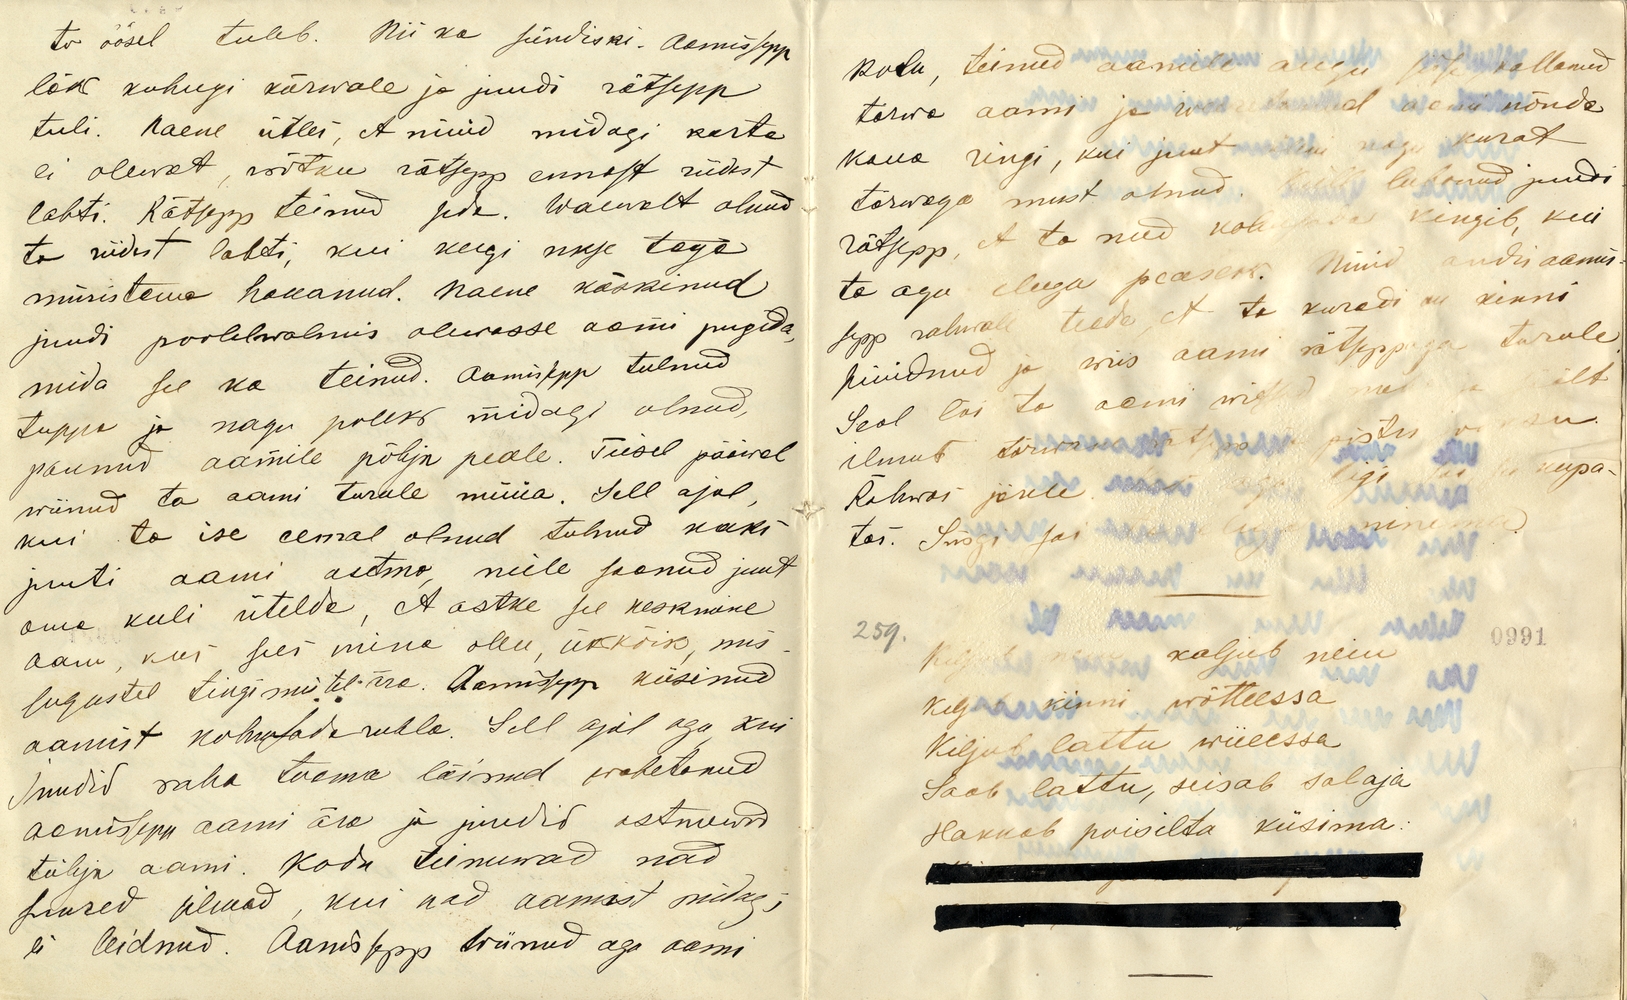 ta öösel tuleb. Nii ka sündiski. Aamissepp
läks kuhugi kõrwale ja juudi rätsepp
tuli. Naene ütles, et nüüd midagi karta
ei olewat, wõtku rätsepp ennast riidest
lahti. Rätsepp teinud seda. Waewalt olnud
ta riidest lahti, kui keegi ukse taga
müristama hakanud. Naene käskinud
juudi poolelwalmis olewasse aami pugeda,
mida see ka teinud. Aamissepp tulnud
tuppa ja nagu poleks midagi olnud,
pannud aamile põhja peale. Teisel pääwal
wiinud ta aami turule müüa. Sell ajal,
kui ta ise eemal olnud tulnud kaks
juuti aami ostma, neile saanud juut
oma keeli ütelda, et ostke see keskmine
aam, kus sees mina olen, ükskõik, mis-
sugustel tingimistel ära. Aamissepp küsinud
aamist kolmsada rubla. Sell ajal aga kui
juudid raha tooma läinud wahetanud
aamissepp aami ära ja juudid ostnuwad
tühja aami. Kodu teinuwad nad
suured silmad, kui nad aamist midagi
ei leidnud. Aamissepp wiinud aga aami
kodu, teinud aamile augu sisse wallanud
tõrwa aami ja aami nõnda
kaua ringi, kui juut nagu kurat
tõrwaga must olnud. lubanud juudi
rätsepp, et ta need kolmsada kingib, kui
ta aga eluga peaseks. Nüüd andis aamis-
sepp rahwale teada, et ta kuradi kinni
püüdnud ja wiis aami rätseppaga turule.
Seal lõi ta aami wigled sealt
ilmus tõrwane rätsepp pistis
Rahwas järele. aga ligi sai kupa-
tas. Siisgi sai minema
259.
0991
Kiljub neiu kaljub neiu
Kiljub kinni wõtteessa
Kiljub lattu wiieessa
Saab lattu, seisab salaja
Hakkab poisilta küsima: